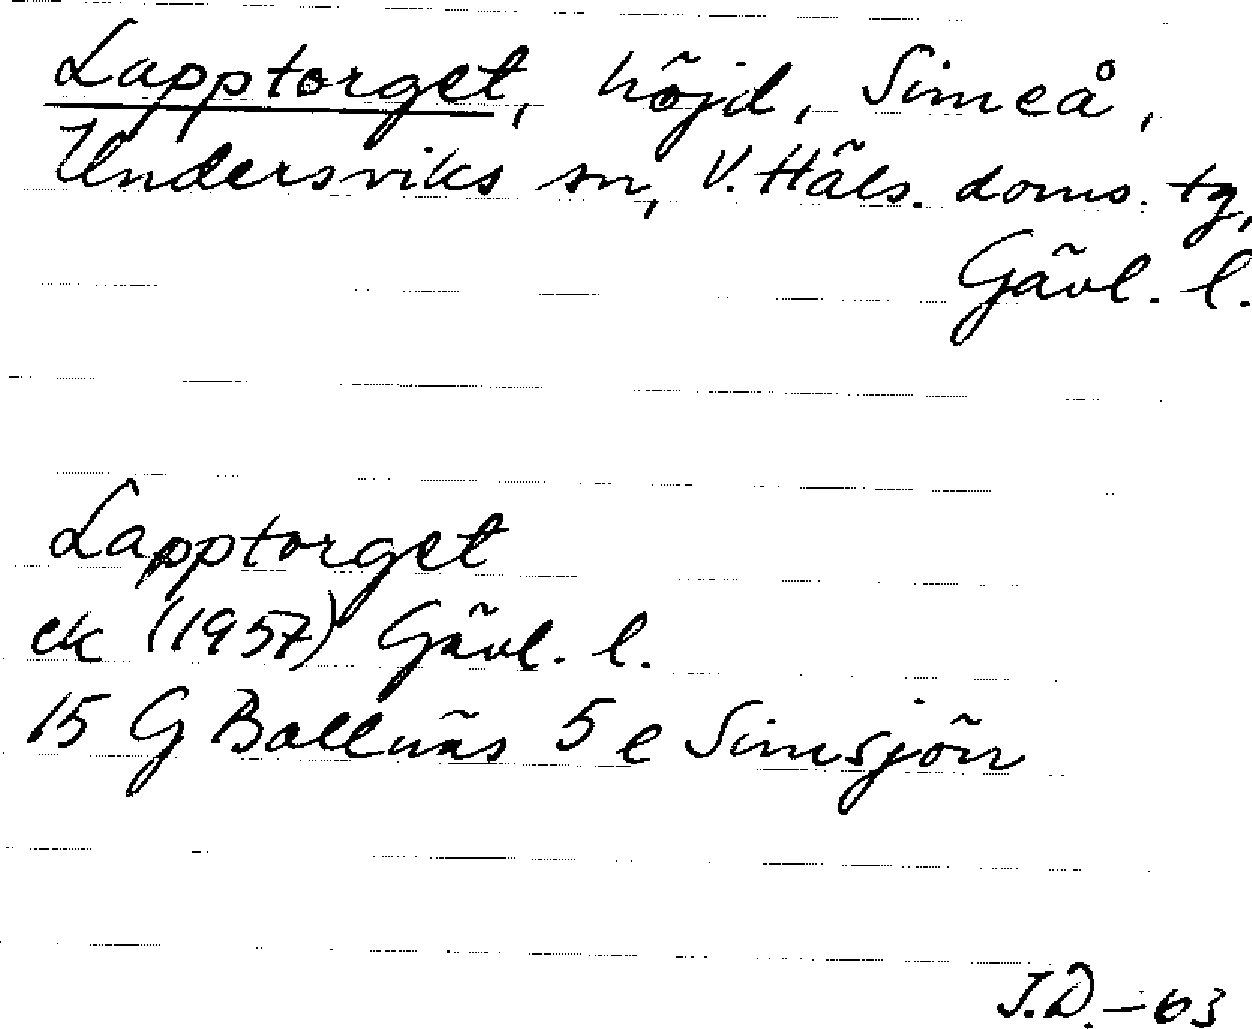 Lapptorget, höjd, Simeå,
Undersviks sn, V. Häls. doms. tg,
Gävl. l.
Lapptorget
ek (1957) Gävl. l.
15 G Bollnäs 5 e Simsjön
J.D. – 63